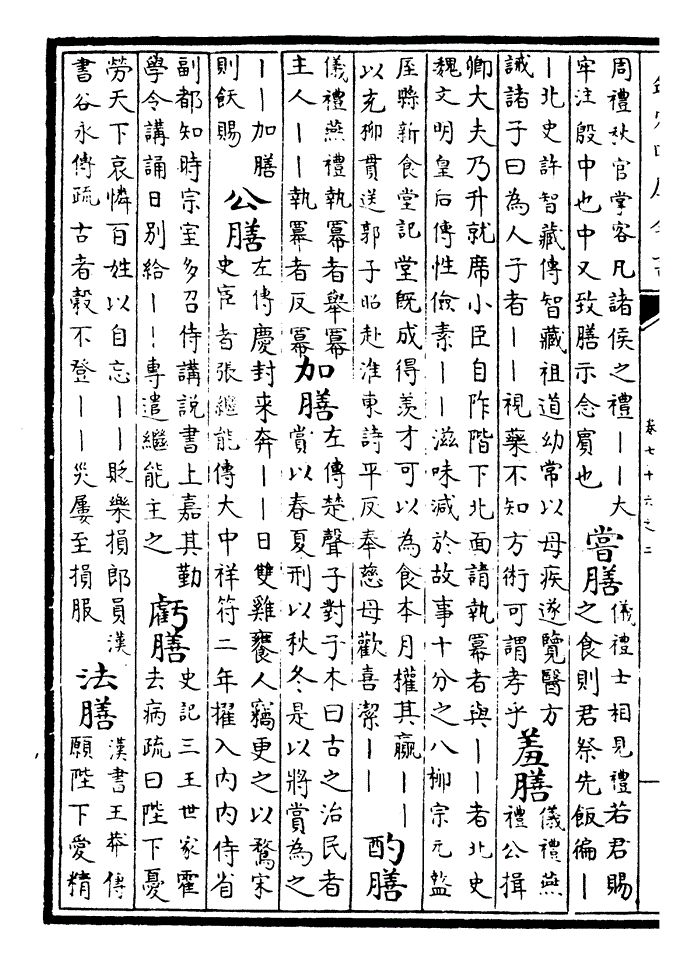 欽定四庫全書
卷七十六之二
周禮秋官掌客凡諸侯之禮丨丨大
牢注殷中也中又致膳示念賓也
嘗膳
儀禮士相見禮若君賜
之食則君祭先飯徧丨
丨北史許智藏傳智藏祖道幼常以母疾遂覽醫方
誡諸子曰為人子者丨丨視藥不知方術可謂孝乎
羞膳
儀禮燕
禮公揖
卿大夫乃升就席小臣自阼階下北面請執冪者與丨丨者北史
魏文明皇后傳性儉素丨丨滋味減於故事十分之八柳宗元盩
厔縣新食堂記堂既成得羨才可以為食本月權其贏丨丨
以充柳貫送郭子昭赴淮東詩平反奉慈母歡喜潔丨丨
酌膳
儀禮燕禮執冪者舉冪
主人丨丨執冪者反冪
加膳
左傳楚聲子對子木曰古之治民者
賞以春夏刑以秋冬是以將賞為之
丨丨加膳
則飫賜
公膳
左傳慶封來奔丨丨日雙雞饔人竊更之以鶩宋
史宦者張繼能傳大中祥符二年擢入内内侍省
副都知時宗室多召侍講說書上嘉其勤
學令講誦日別給丨丨專遣繼能主之
虧膳
史記三王世家霍
去病疏曰陛下憂
勞天下哀憐百姓以自忘丨丨貶樂損郎員漢
書谷永傳疏古者榖不登丨丨災屢至損服
法膳
漢書王莽傳
願陛下愛精